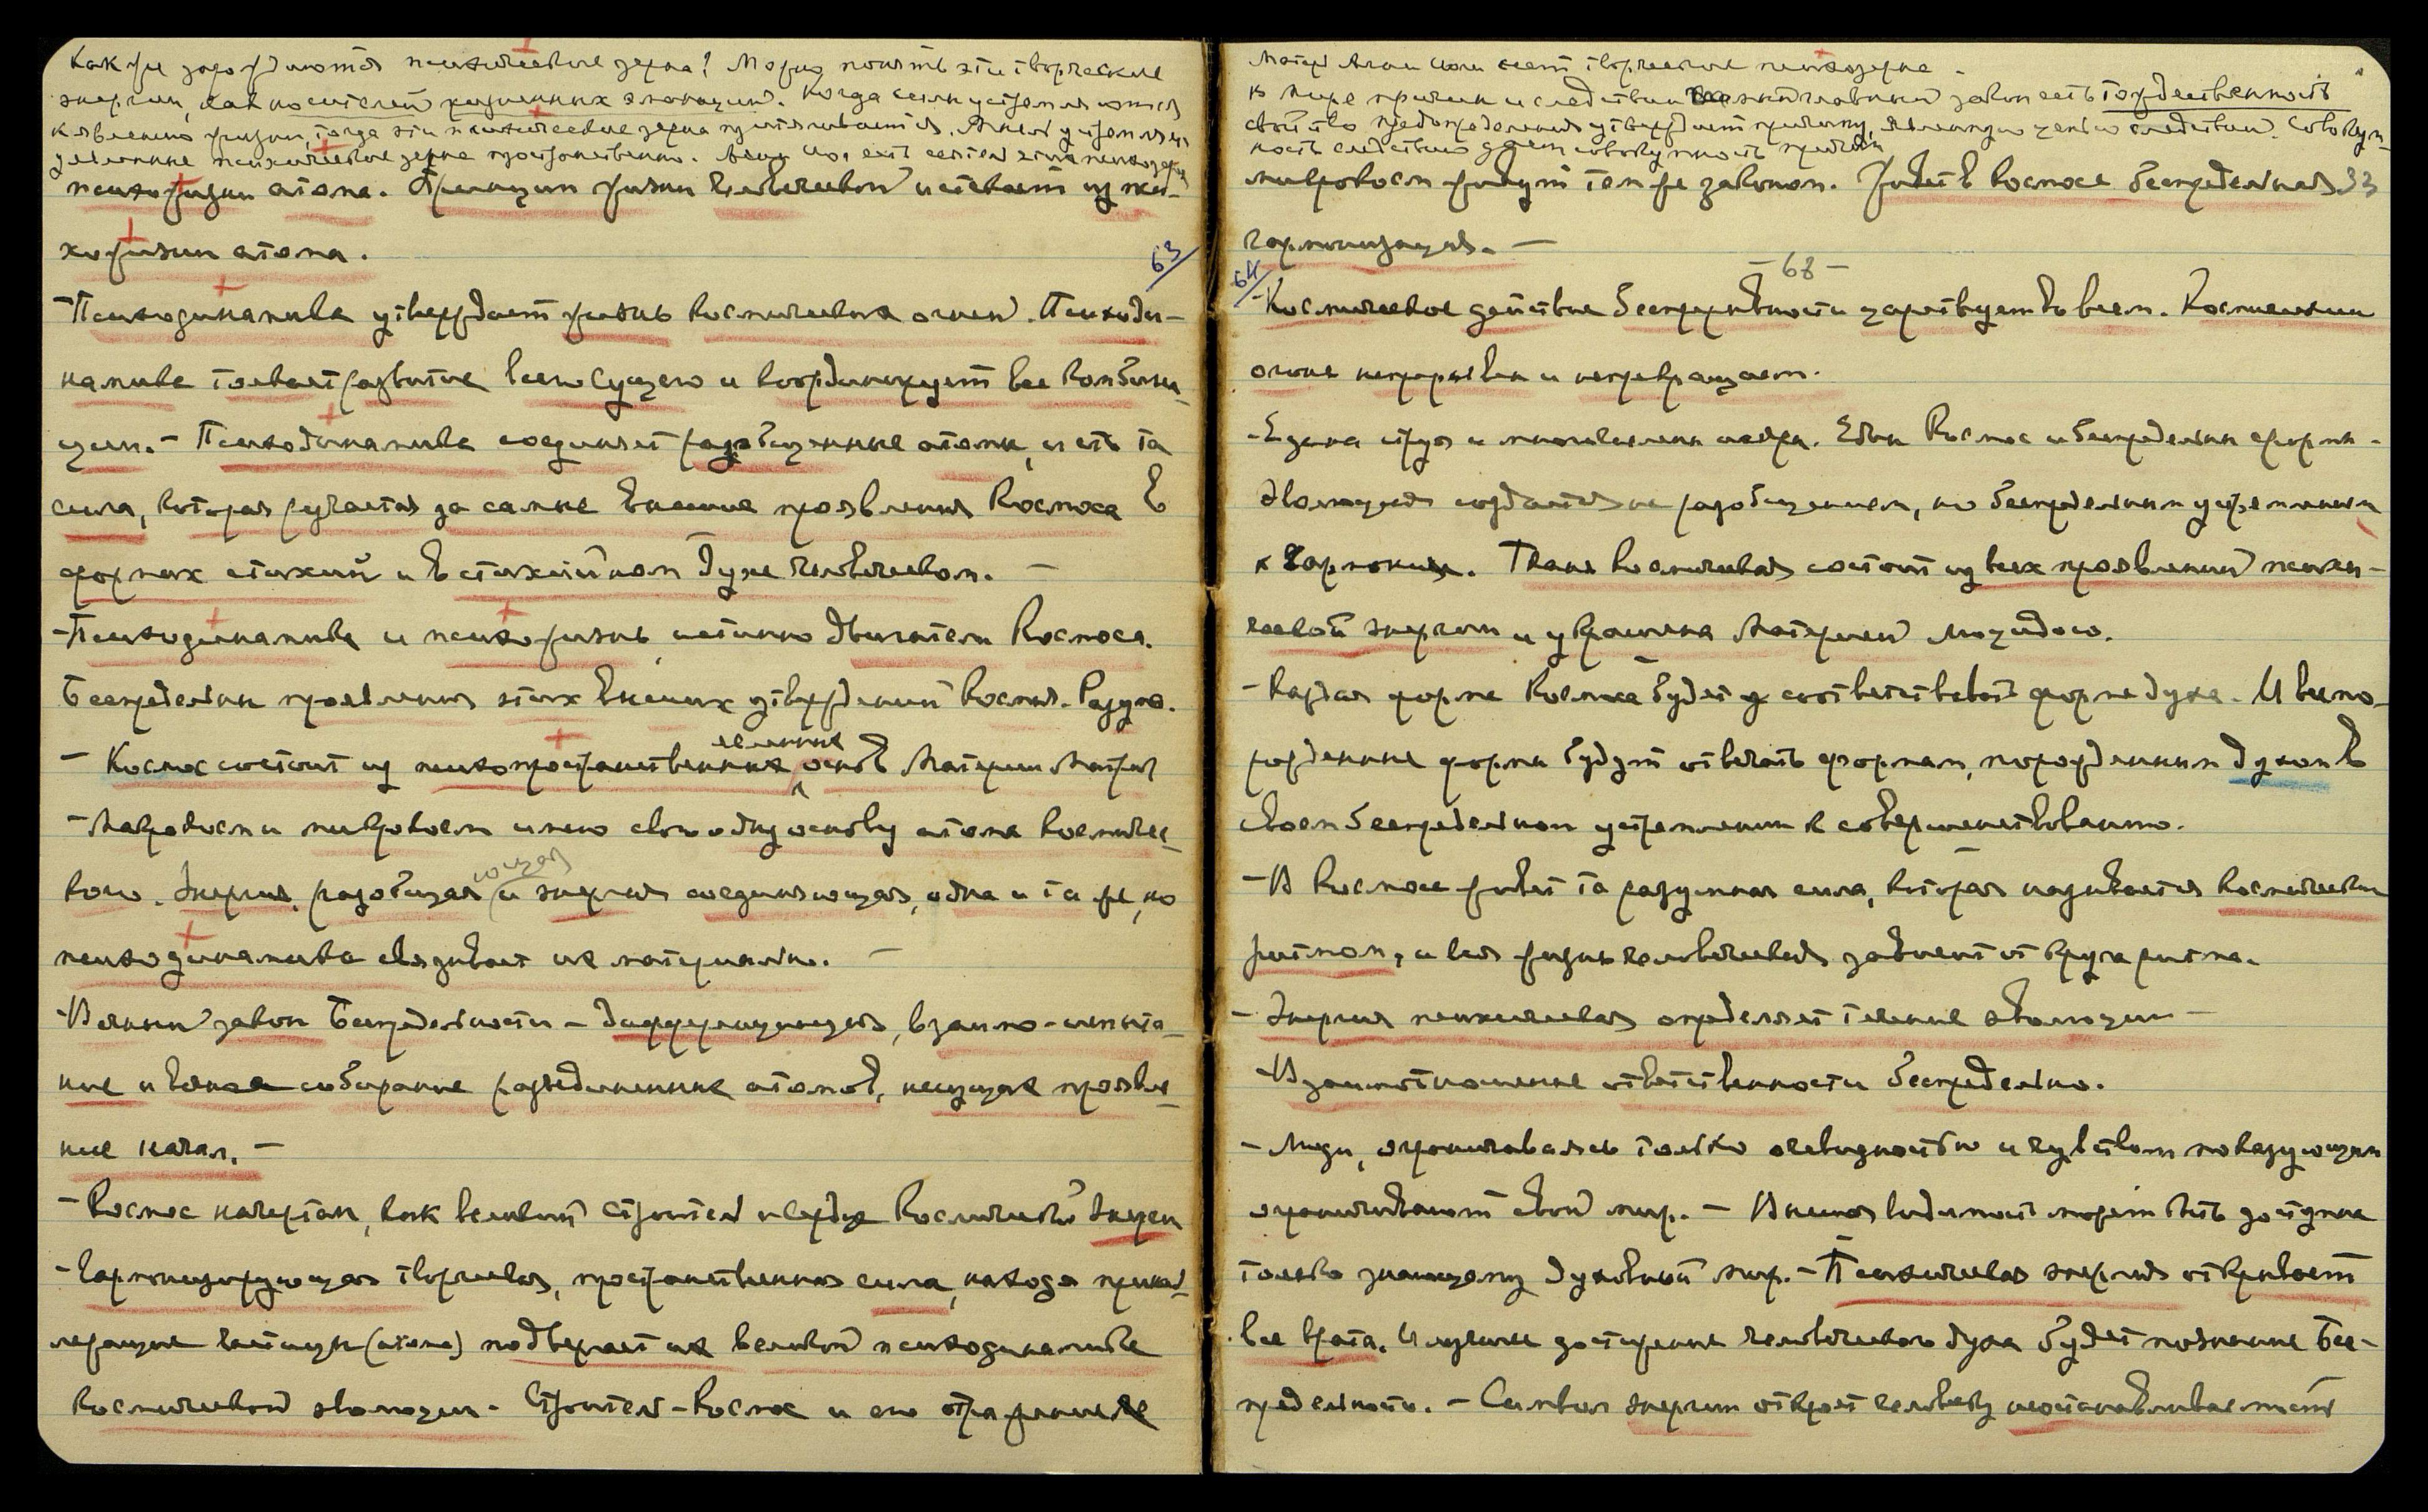 Как же зарождаются психические зерна? Можно понять эти творческие
энергии, как носителей жизненных эманаций. Когда силы устремляются
к явлению жизни, тогда эти психические зерна притягиваются.
психические зерна пространственно.
психожизни атома. Функции жизни человеческой истекают из пси-
хожизни атома.
63
- Психодинамика утверждает жизнь космических огней. Психоди-
намика толкает развитие всего Сущего и координирует все комбина-
ции. - Психодинамика соединяет разобщенные атомы, и есть та
сила, которая ручается за самые высшие проявления Космоса в
формах стихий и в стихийном духе человеческом. -
- Психодинамика и психожизнь истинно двигатели Космоса.
Беспредельны проявления этих высших утверждений Косм. Разума.
- Космос состоит из психопространственных явленных основ Материи Матрикс
- Макрокосм и микрокосм имеют свою одну основу атома космичес-
кого. Энергия разобщающая и энергия соединяющая, одна и та же, но
психодинамика связывает их материально. -
- Вечный закон Беспредельности - дифференциация, взаимо-
ние и вечное собирание разъединенных атомов, несущих проявле-
ние начал. -
- Космос начертан, как великий Строитель и Сердце Космической Энерги
- Гармонизирующая творческая, пространственная сила, находя принад-
лежащие частицы (атома) подвергает их великой психодинамике
космической эволюции. Строитель - Космос и его отражение
Матерь Агни Йоги сеет творческие психозерна -
В мире причин и следствий главный закон есть тождественность
свойство предопределения утверждает причину, являющую цепь следствий. Совокуп-
ность следствий дает совокупность причин
микрокосм живут тем же законом. Живет в космосе беспредельная 33
гармонизация. -
64
- 68 -
- Космическое действие беспрерывности царствует во всем. Космический
огонь непрерывен и непрекращаем.
- Едина струя и многочисленны искры. Един Космос и беспредельны формы -
Эволюция создается не разобщением, но беспредельным устремлением
к Гармонии. Ткань космическая состоит из всех проявлений психи-
ческой энергии и украшена Материей Люцидою.
- Каждая форма Космоса будет соответствовать форме духа. И всепо-
рожденные формы будут отвечать формам, порожденным духом в
своем беспредельном устремлении к совершенствованию.
- В Космосе живет та разумная сила, которая называется космическим
ритмом, и вся жизнь человеческая зависит от круга ритма.
- Энергия психическая определяет течение эволюции -
- Взаимоотношение ответственности беспредельно.
- Люди, ограничиваясь только очевидностью и чувством показующим
ограничивают свой мир. - Внешняя видимость может быть доступна
только знающему духовный мир. - Психическая энергия открывает
все врата. И лучшее достижение человеческого духа будет познание Бес-
предельности. - Символ энергии откроет человеку неостанавливаемость